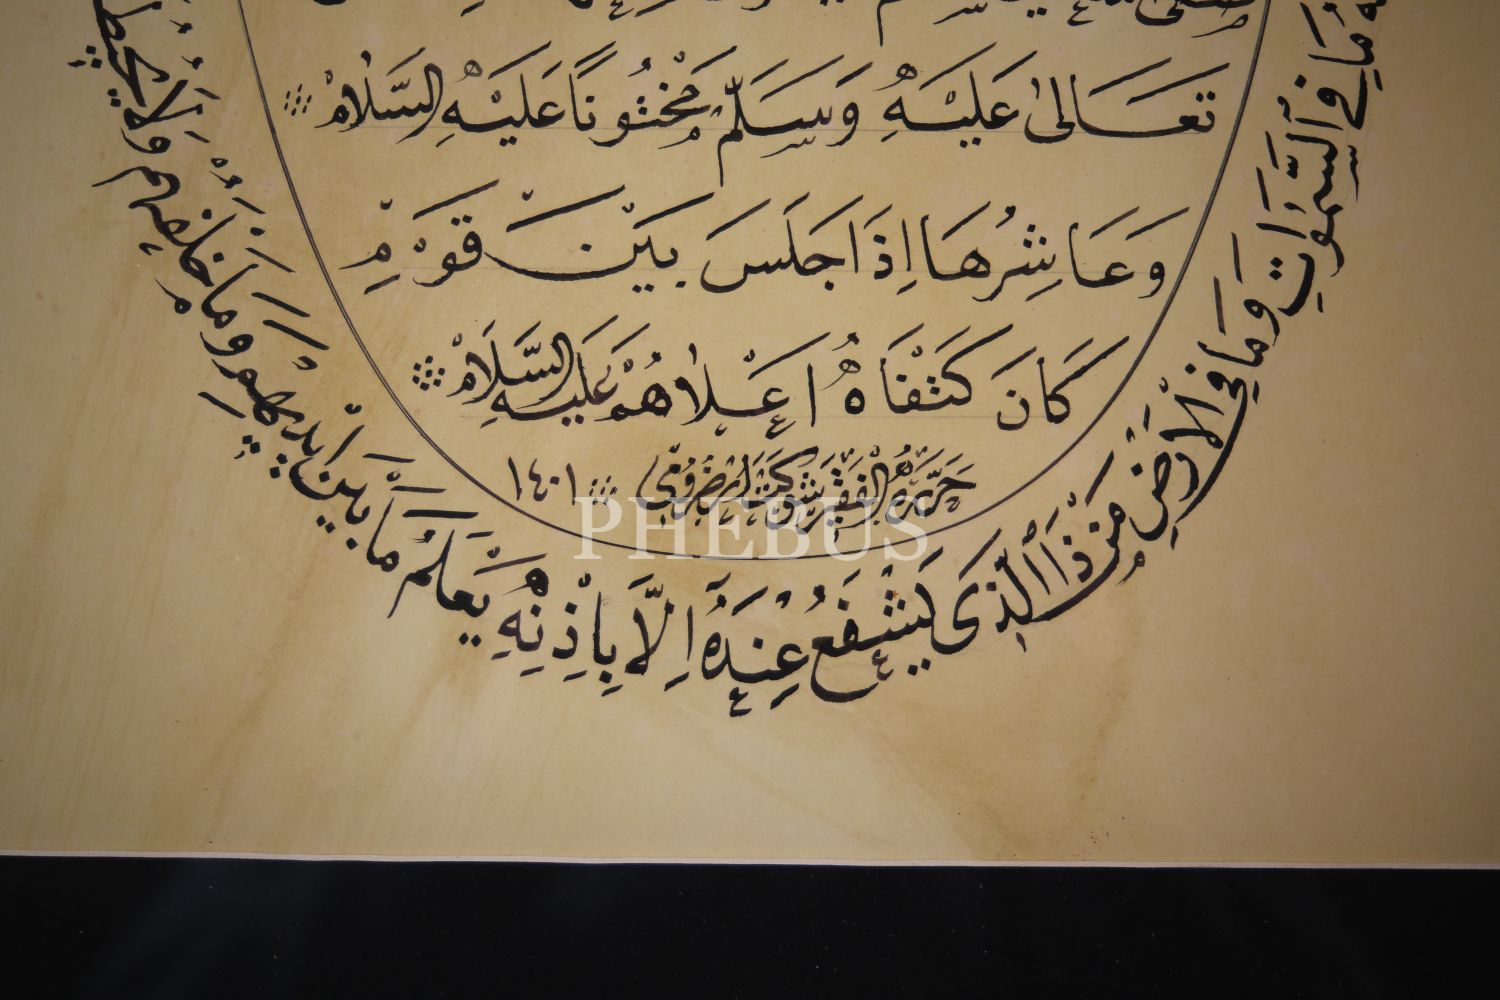 تَعَالىٰ عَلَيْهِ وَسَلَّمْ مَخْتُونًا عَلَيْهِ السَّلَامْ
وَعَاشِرُهَا اِذَا جَلَسَ بَيْنَ قَوْمٍ
كَانَ كَتْفَاهُ اَعْلَاهُمْ عَلَيْهِ السَّلَامْ
حَرَّرَهُ الْفَقِيرُ شَوْكَتْ
١٤٠١
مَا فِي السَّمٰوَاتِ وَمَا فِي الْاَرْضِ مَنْ ذَا الَّذِي يَشْفَعُ عِنْدَهُ اِلَّا بِاِذْنِهِ يَعْلَمُ مَا بَيْنَ اَيْدِيهِمْ وَمَا خَلْفَهُمْ وَلَا
PHEBUS